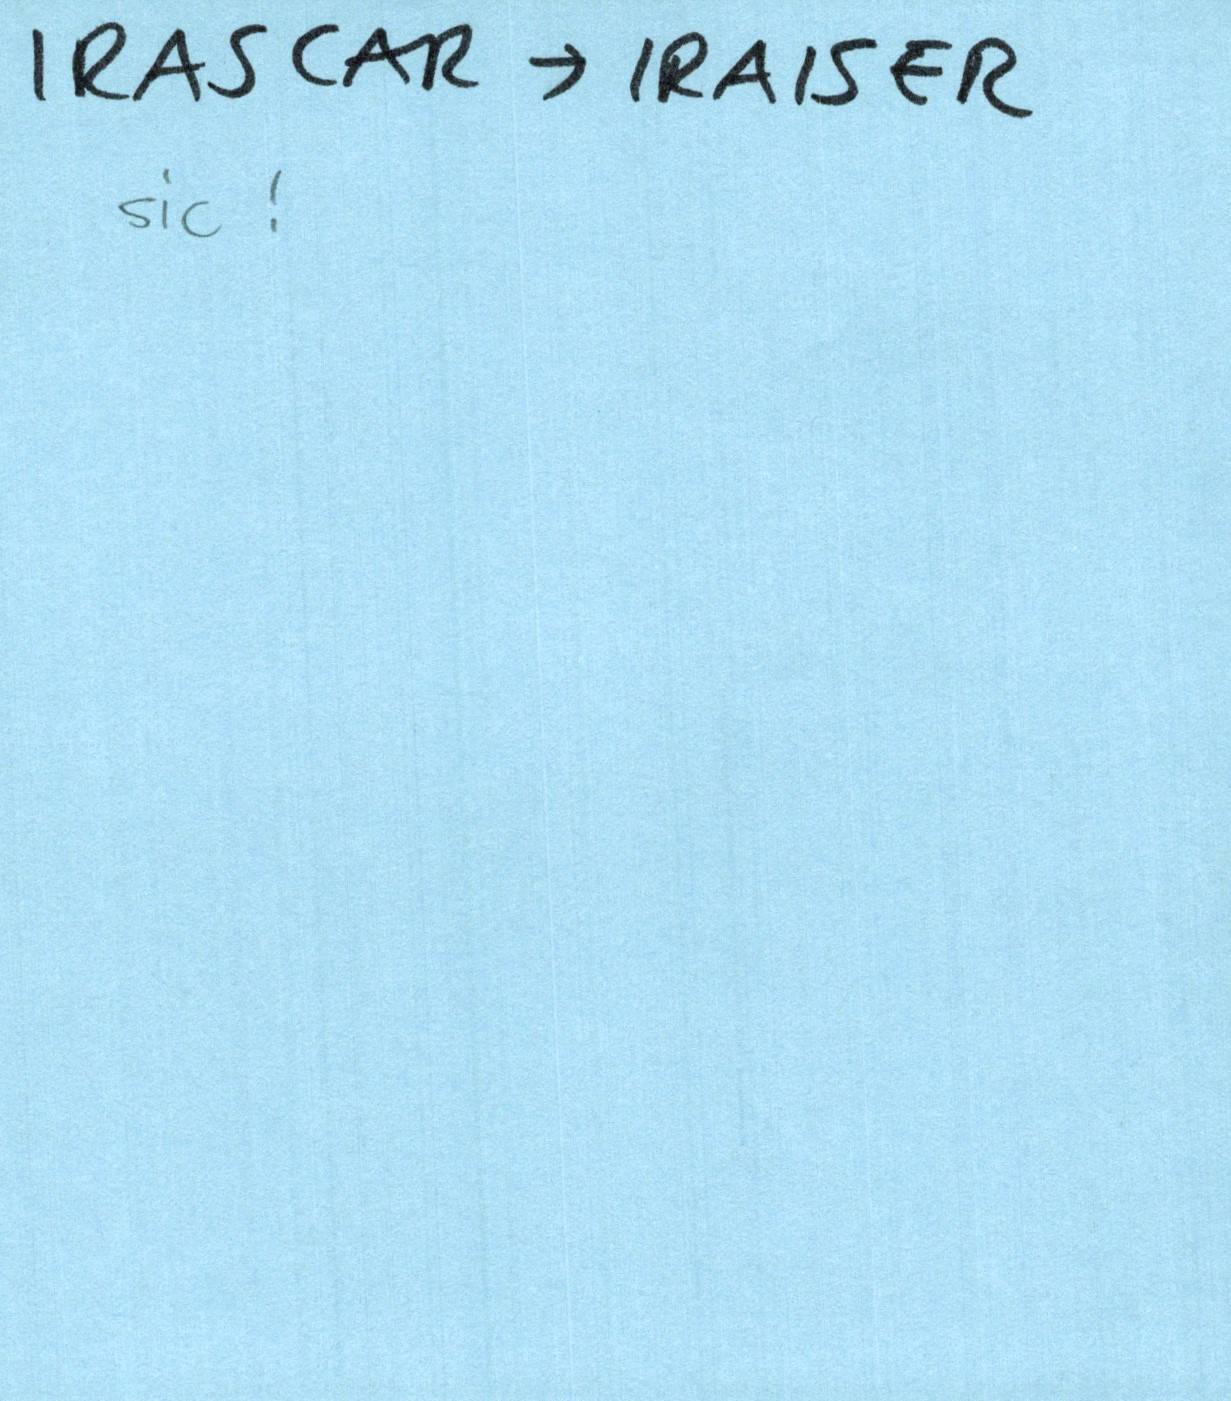 IRASCAR → IRAISER
sic !